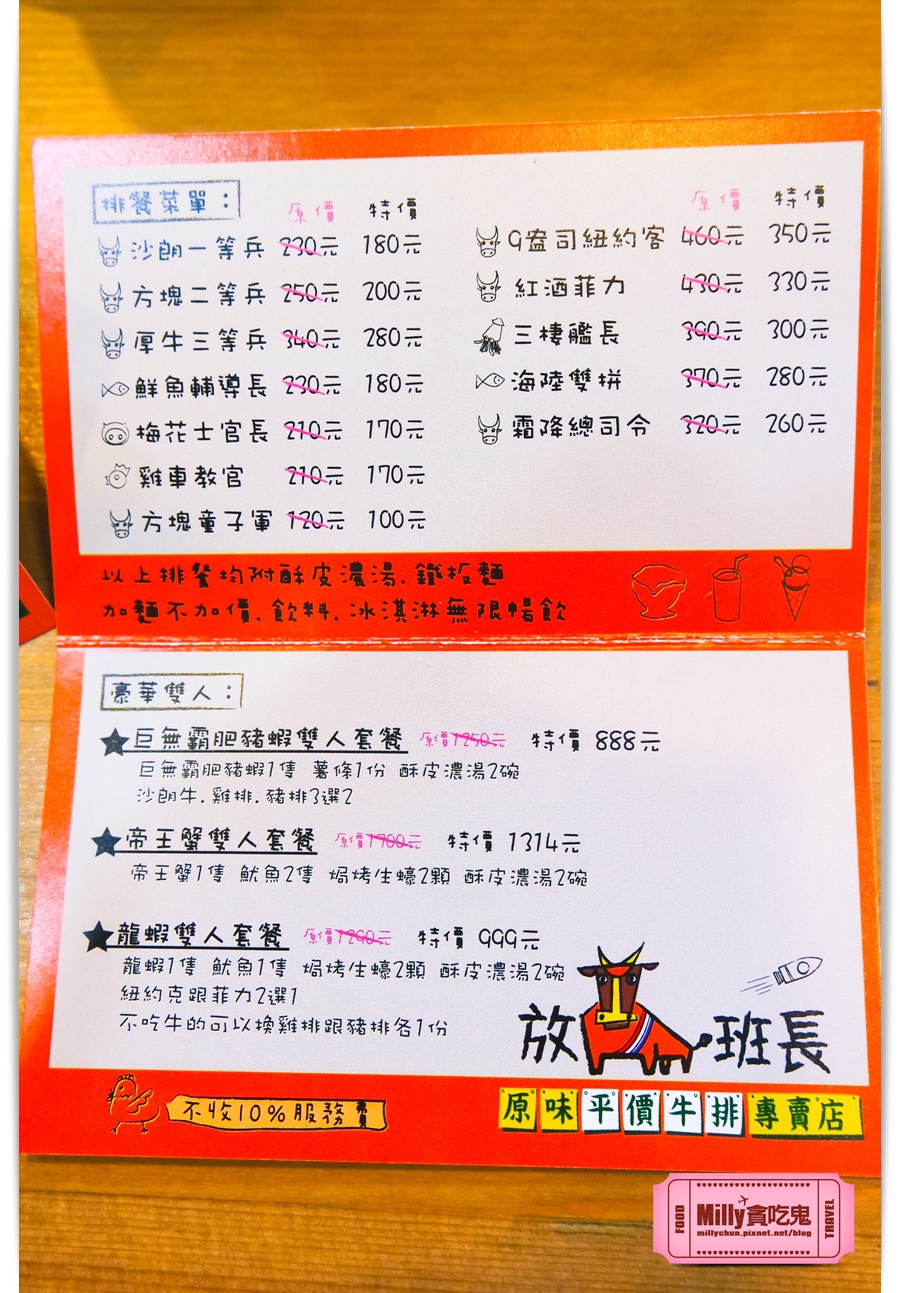 排餐菜單：
原價 特價
沙朗一等兵 230元 180元
方塊二等兵 250元 200元
厚牛三等兵 340元 280元
鮮魚輔導長 230元 180元
梅花士官長 210元 170元
雞車教官 210元 170元
方塊童子軍 120元 100元
原價 特價
9盎司紐約客 460元 350元
紅酒菲力 430元 330元
三棲艦長 390元 300元
海陸雙拼 370元 280元
霜降總司令 320元 260元
以上排餐均附酥皮濃湯.鐵板麵
加麵不加價.飲料.冰淇淋無限暢飲
豪華雙人：
★巨無霸肥豬蝦雙人套餐 原價1250元 特價 888元
巨無霸肥豬蝦1隻 薯條1份 酥皮濃湯2碗
沙朗牛.雞排.豬排3選2
★帝王蟹雙人套餐 原價1700元 特價 1314元
帝王蟹1隻 魷魚2隻 焗烤生蠔2顆 酥皮濃湯2碗
★龍蝦雙人套餐 原價1290元 特價 999元
龍蝦1隻 魷魚1隻 焗烤生蠔2顆 酥皮濃湯2碗
紐約克跟菲力2選1
不吃牛的可以換雞排跟豬排各1份
放 班長
不收10%服務費
原味平價牛排專賣店
FOOD Milly貪吃鬼 TRAVEL
millychun.pixnet.net/blog